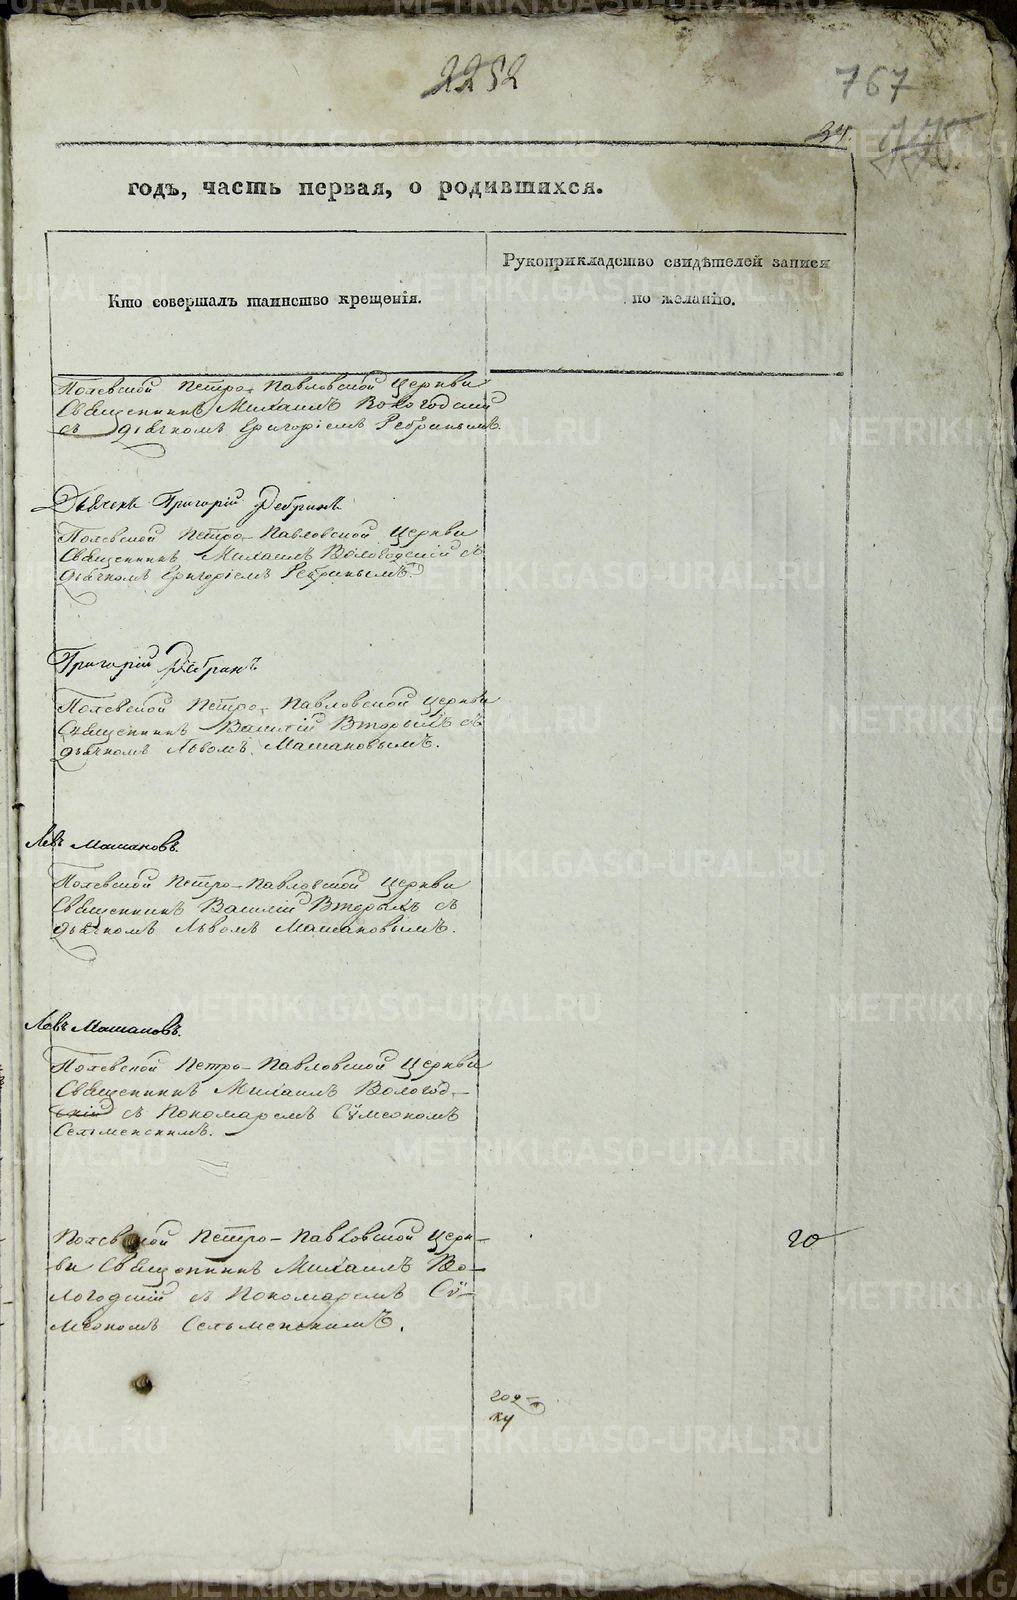 2252
767
34.
годъ, часть первая, о родившихся.
Кто совершалъ таинство крещенія.
Рукоприкладство свидѣтелей записи
по желанію.
Полевской Петро-Павловской Церкви
Священникъ Михаилъ Вологодскій
съ дьячкомъ Григоріемъ Ребринымъ.
Дьячекъ Григорій Ребринъ
Полевской Петро-Павловской Церкви
Священникъ Михаилъ Вологодскій съ
дьячкомъ Григоріемъ Ребринымъ.
Григорій Ребринъ
Полевской Петро-Павловской Церкви
Священникъ Василій Вторыхъ съ
дьячкомъ Львомъ Машановымъ.
Левъ Машановъ.
Полевской Петро-Павловской Церкви
Священникъ Василій Вторыхъ съ
дьячкомъ Львомъ Машановымъ.
Левъ Машановъ.
Полевской Петро-Павловской Церкви
Священникъ Михаилъ Вологод-
скій съ Пономаремъ Сѵмеономъ
Сельменскимъ.
Полевской Петро-Павловской Церк-
ви Священникъ Михаилъ Во-
логодскій съ Пономаремъ Сѵ-
меономъ Сельменскимъ.
20
METRIKI.GASO-URAL.RU